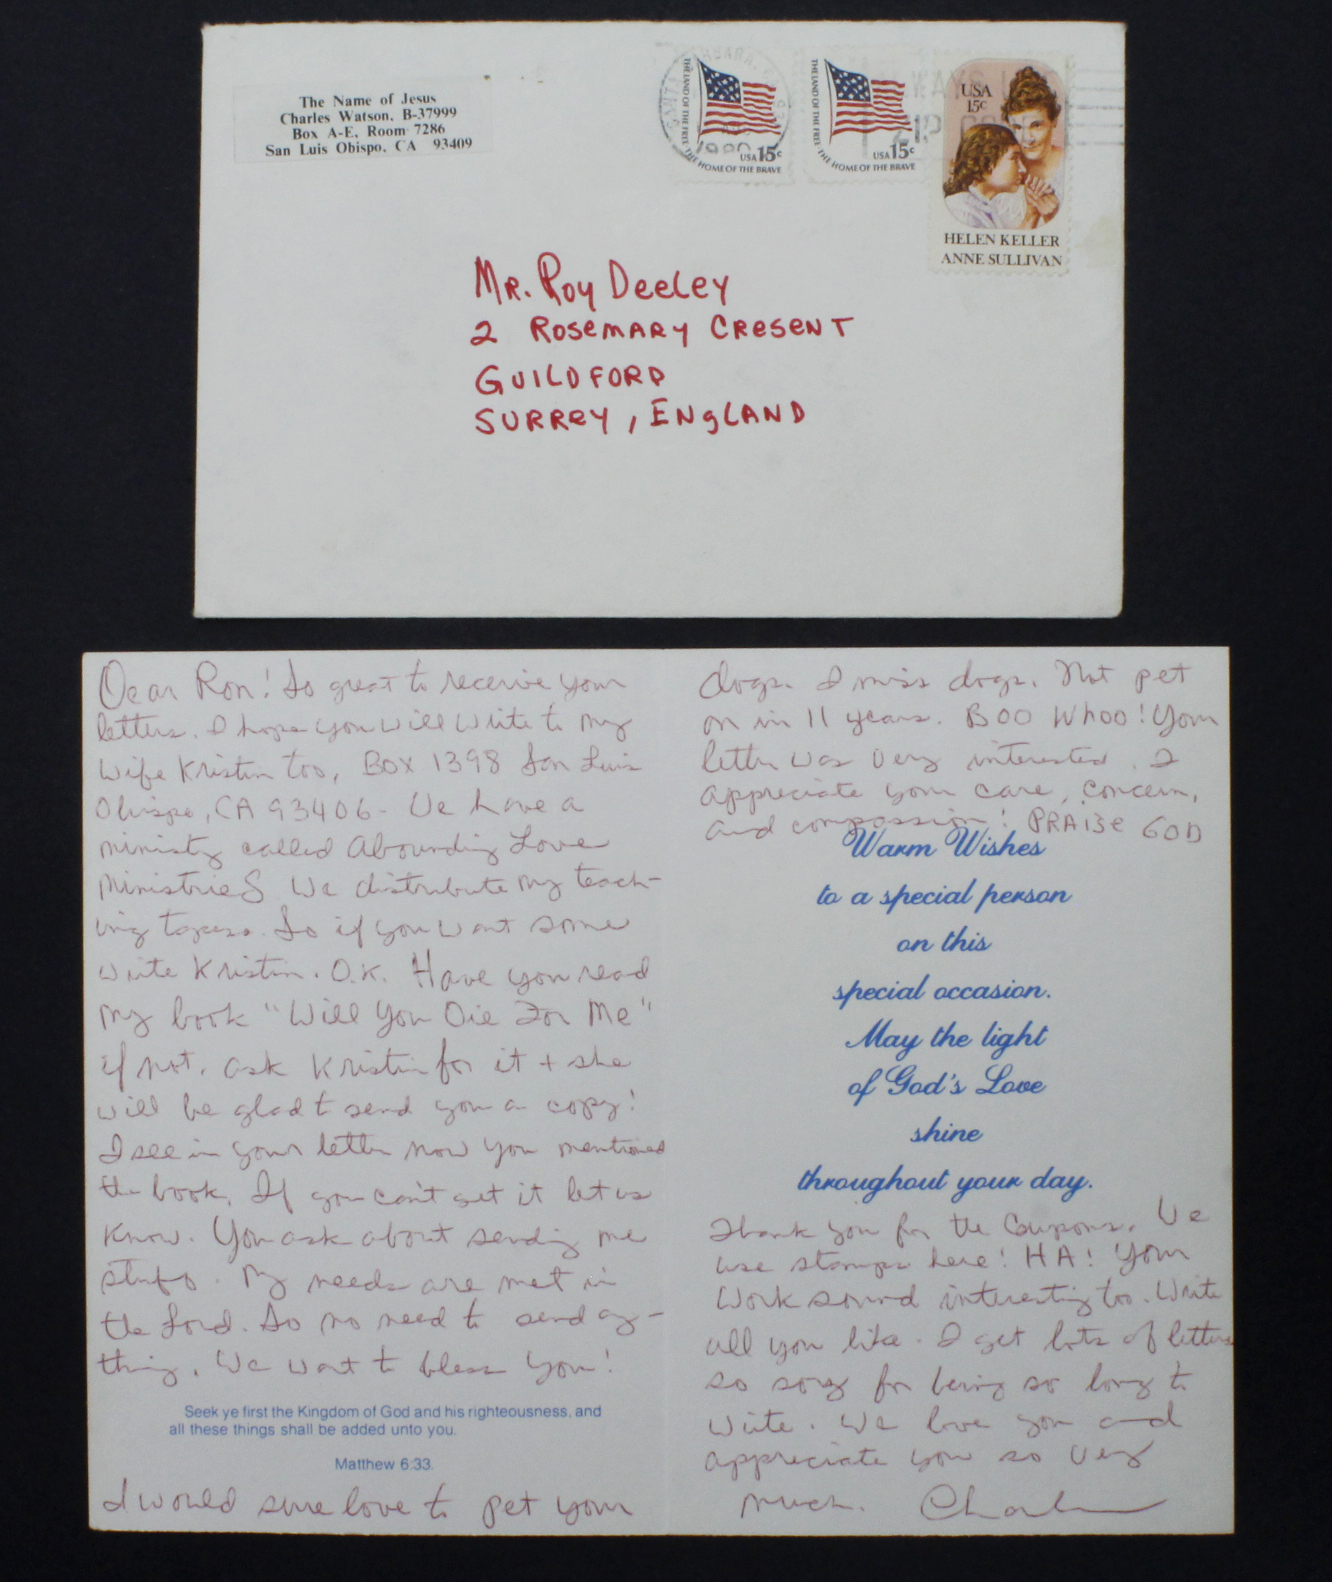 The Name of Jesus
Charles Watson, B-37999
Box A-E, Room 7286
San Luis Obispo, CA 93409
1980
THE LAND OF THE FREE THE HOME OF THE BRAVE
USA 15c
THE LAND OF THE FREE THE HOME OF THE BRAVE
USA 15c
USA
15c
HELEN KELLER
ANNE SULLIVAN
Mr. Roy Deeley
2 Rosemary Cresent
Guildford
Surrey, England
Dear Ron! So great to receive your
letters. I hope you will write to my
wife Kristin too, Box 1398 San Luis
Obispo, CA 93406- We have a
ministry called Abounding Love
Ministries We distribute my teach-
ing tapes. So if you want some
write Kristin. O.K. Have you read
my book "Will You Die For Me"
if not, ask Kristin for it + she
will be glad to send you a copy!
I see in your letter now you mentioned
the book. If you can't get it let us
know. You ask about sending me
stuff. My needs are met in
the Lord. So no need to send any-
thing. We want to bless you!
Seek ye first the Kingdom of God and his righteousness, and
all these things shall be added unto you.
Matthew 6:33.
I would sure love to pet your
dogs. I miss dogs. Not pet
on in 11 years. Boo Whoo! Your
letter was very interested. I
appreciate your care, concern,
and compassion! PRAISE GOD
Warm Wishes
to a special person
on this
special occasion.
May the light
of God's Love
shine
throughout your day.
Thank you for the Coupons. We
use stamps here! HA! Your
work sound interesting too. Write
all you like. I get lots of letters
so sorry for being so long to
write. We love you and
appreciate you so very
much. Charles